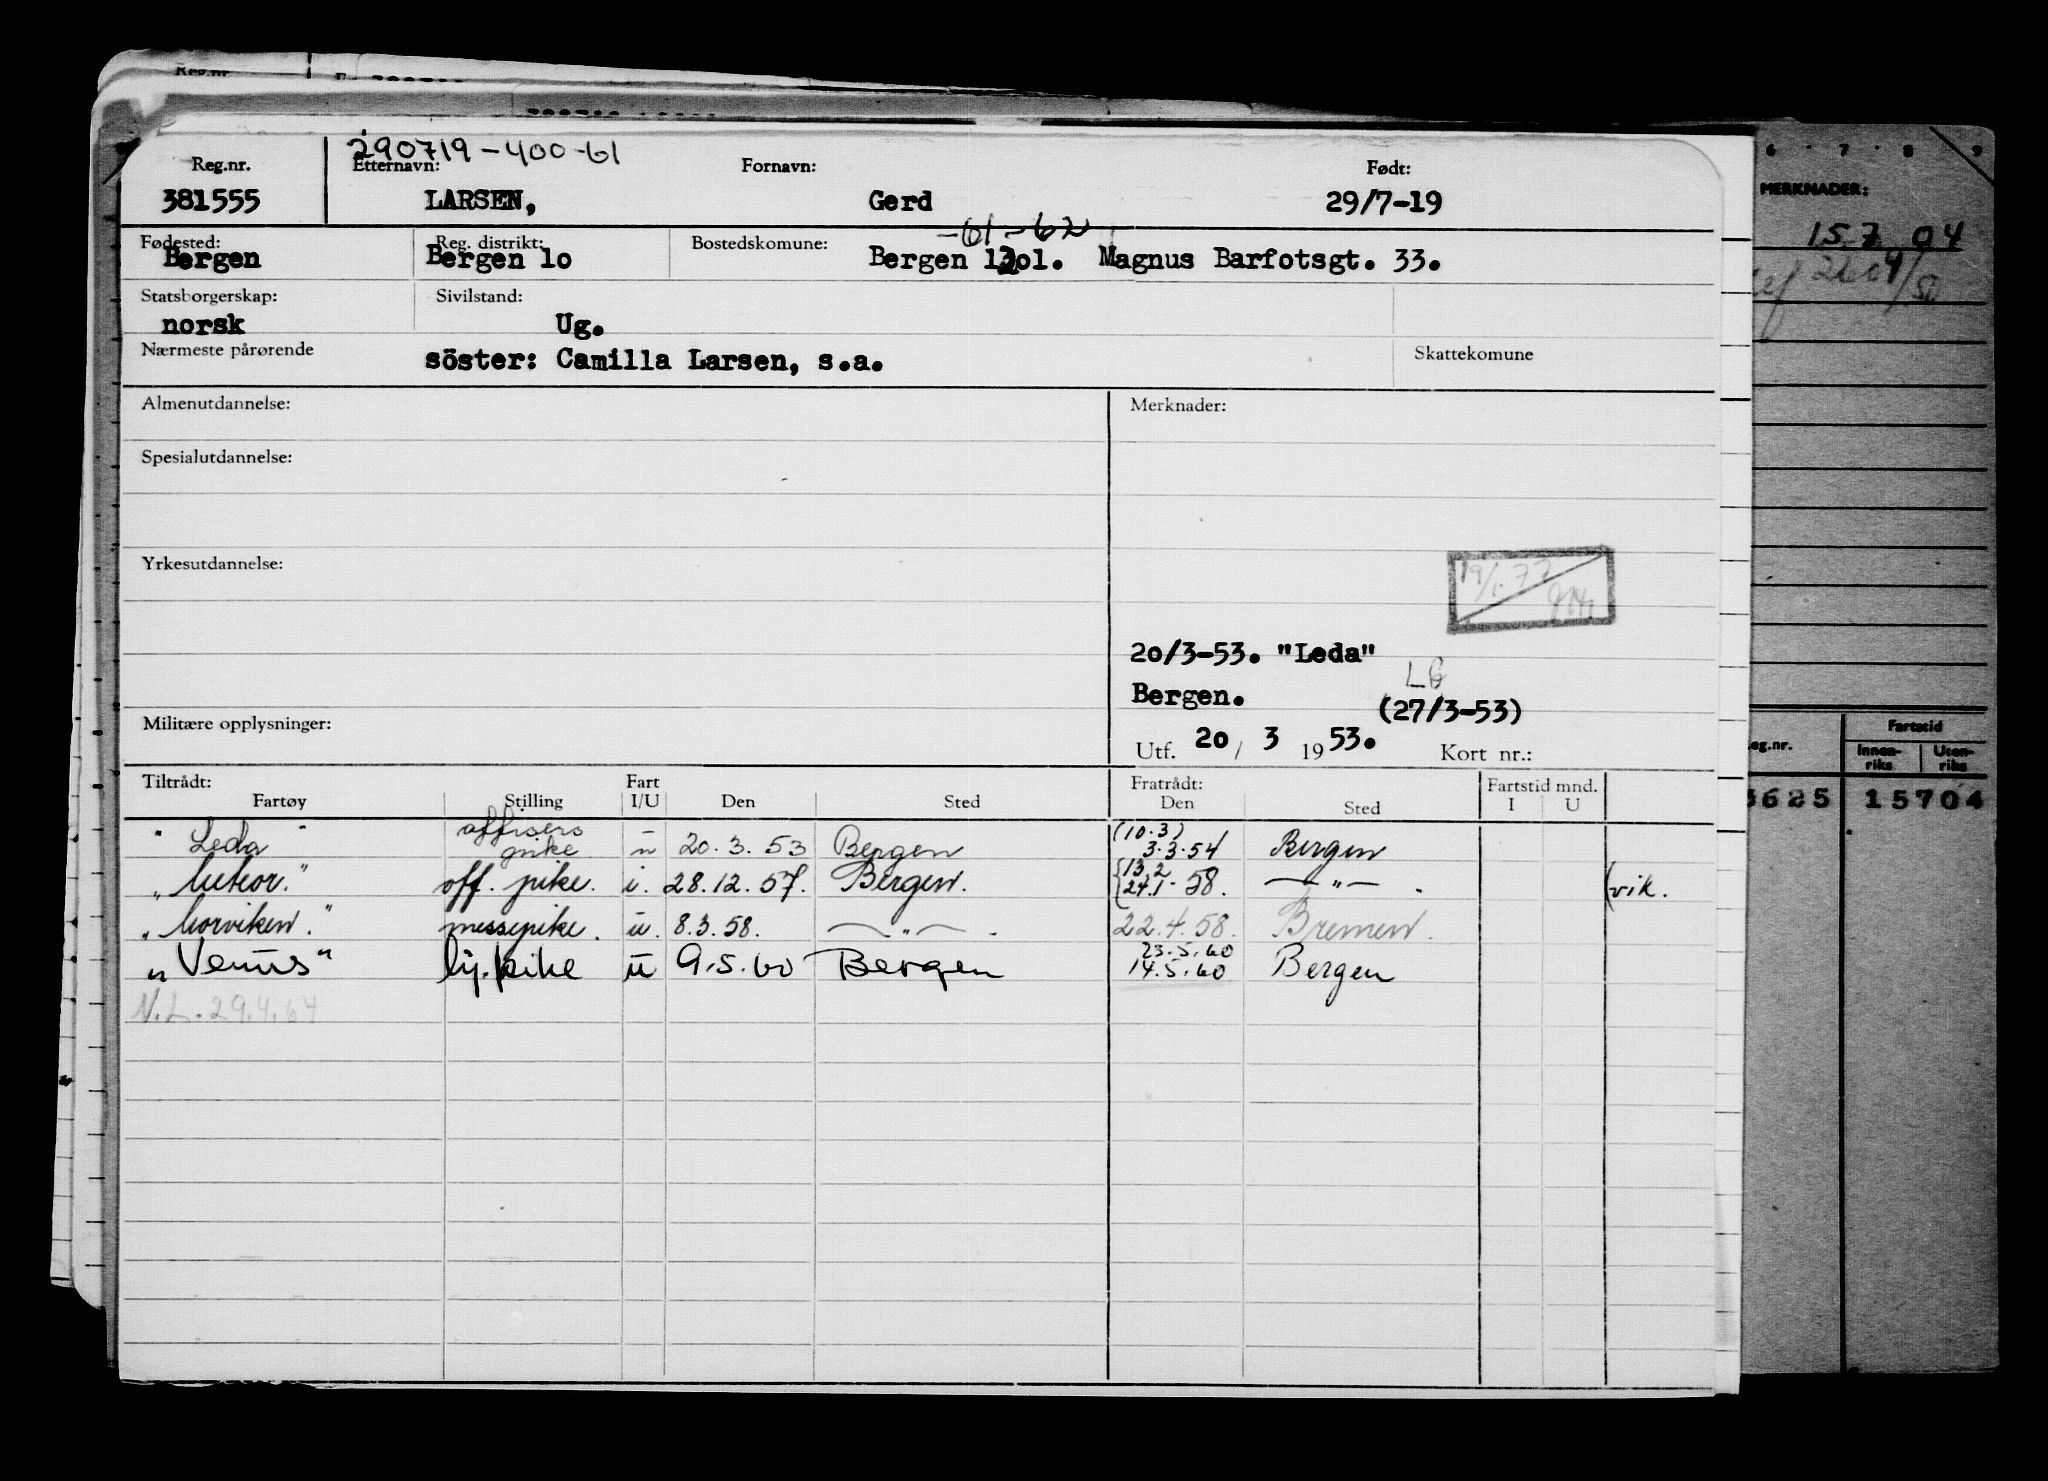 290719-400-61
Reg.nr. Etternavn: Fornavn: Født:
381555 LARSEN, Gerd 29/7-19
-61-62
Fødested: Reg. distrikt: Bostedskomune:
Bergen Bergen 10 Bergen 1301. Magnus Barfotsgt. 33.
Statsborgerskap: Sivilstand:
norsk Ug.
Nærmeste pårørende Skattekomune
söster: Camilla Larsen, s.a.
Almenutdannelse: Merknader:
Spesialutdannelse:
Yrkesutdannelse:
20/3-53. "Leda"
Bergen. (27/3-53)
Militære opplysninger:
Utf. 20 / 3 1953. Kort nr.:
Tiltrådt: Fart Fratrådt: Fartstid mnd.
Fartøy Stilling I/U Den Sted Den Sted I U
"Leda" offisers pike u 20.3.53 Bergen (10.3) 3.3.54 Bergen
"Meteor." off. pike. i. 28.12.57. Bergen. 13.2 24.1.58. —"— . (vik.
"Morviken." messepike. u. 8.3.58. —"— . 22.4.58. Bremen.
"Venus" u 9.5.60 Bergen 23.5.60 14.5.60 Bergen
N.L. 29.4.64
MERKNADER:
157 04
Fartstid
Innen-riks Uten-riks
5625 15704